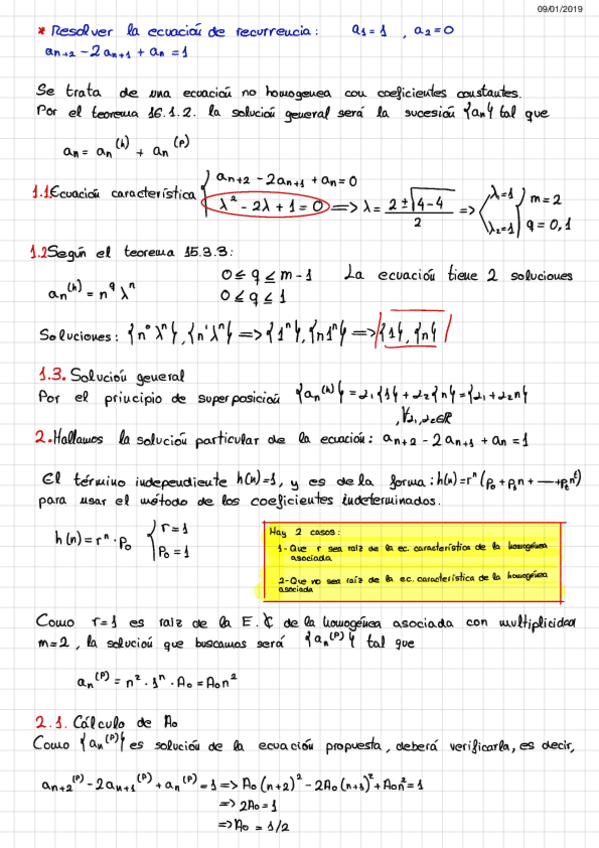 09/01/2019
* Resolver la ecuación de recurrencia: a₁=1 , a₂=0
aₙ₊₂ - 2aₙ₊₁ + aₙ = 1
Se trata de una ecuación no homogenea con coeficientes constantes.
Por el teorema 16.1.2. la solución general será la sucesión {aₙ} tal que
aₙ = aₙ⁽ʰ⁾ + aₙ⁽ᵖ⁾
1.1.Ecuación característica { aₙ₊₂ - 2aₙ₊₁ + aₙ = 0
λ² - 2λ + 1 = 0 => λ = (2 ± √4-4)/2 => λ=1, λ₂=1 } m = 2, q = 0,1
1.2.Según el teorema 15.3.3:
0 ≤ q ≤ m-1 La ecuación tiene 2 soluciones
aₙ⁽ʰ⁾ = n^q λⁿ 0 ≤ q ≤ 1
Soluciones: {n⁰λⁿ}, {n¹λⁿ} => {1ⁿ}, {n1ⁿ} => {1}, {n}
1.3. Solución general
Por el principio de superposición {aₙ⁽ʰ⁾} = α₁{1} + α₂{n} = {α₁ + α₂n}
, ∀α₁,α₂∈ℝ
2.Hallamos la solución particular de la ecuación: aₙ₊₂ - 2aₙ₊₁ + aₙ = 1
El término independiente h(n)=1, y es de la forma: h(n)=rⁿ(p₀+p₁n+---+pₜnᵗ)
para usar el método de los coeficientes indeterminados.
h(n) = rⁿ · p₀ { r = 1
p₀ = 1
Hay 2 casos:
1-Que r sea raíz de la ec. característica de la homogénea
asociada
2-Que no sea raíz de la ec. característica de la homogénea
asociada
Como r=1 es raíz de la E.C de la homogénea asociada con multiplicidad
m=2, la solución que buscamos será {aₙ⁽ᵖ⁾} tal que
aₙ⁽ᵖ⁾ = n² · 1ⁿ · A₀ = A₀n²
2.1. Cálculo de A₀
Como {aₙ⁽ᵖ⁾} es solución de la ecuación propuesta, deberá verificarla, es decir,
aₙ₊₂⁽ᵖ⁾ - 2aₙ₊₁⁽ᵖ⁾ + aₙ⁽ᵖ⁾ = 1 => A₀(n+2)² - 2A₀(n+1)² + A₀n² = 1
=> 2A₀ = 1
=> A₀ = 1/2